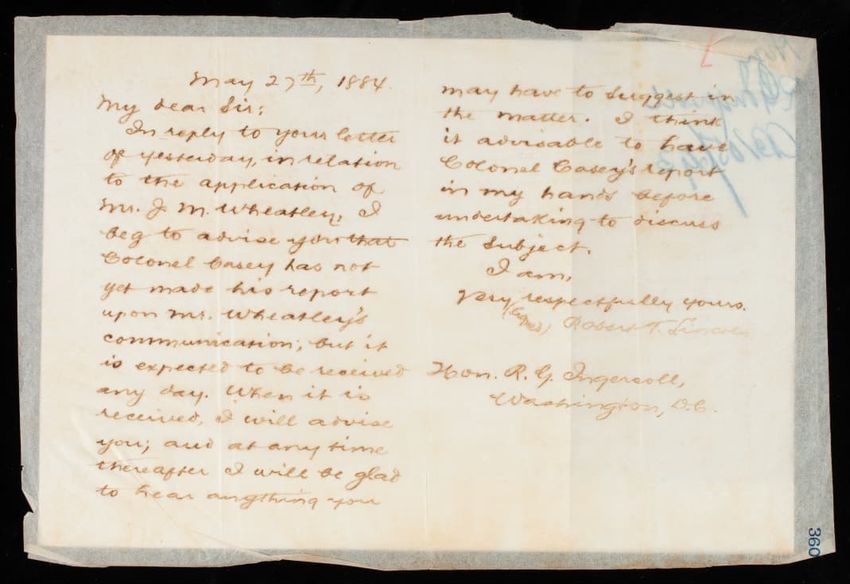 May 27th, 1884.
My dear Sir:
In reply to your letter
of yesterday, in relation
to the application of
Mr. J. M. Wheatley, I
beg to advise you that
Colonel Casey has not
yet made his report
upon Mr. Wheatley's
communication; but it
is expected to be received
any day. When it is
received, I will advise
you; and at any time
thereafter I will be glad
to hear anything you
may have to suggest in
the matter. I think
it advisable to have
Colonel Casey's report
in my hands before
undertaking to discuss
the subject.
I am,
Very respectfully yours.
(Signed) Robert T. Lincoln
Hon. R. G. Ingersoll,
Washington, D.C.
360